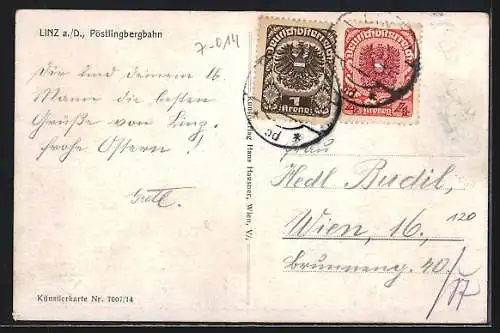 LINZ a./D., Pöstlingbergbahn
7-014
Dir und deinem lb.
Manne die besten
Grüße von Linz,
frohe Ostern!
Gretl.
Künstlerkarte Nr. 7007/14
Kunstverlag Hans Hausner, Wien, V/
Deutschösterreich
1
Krone
Deutschösterreich
4
Kronen
Frau
Hedl Budil,
Wien, 16,
Brunneng. 40/
120